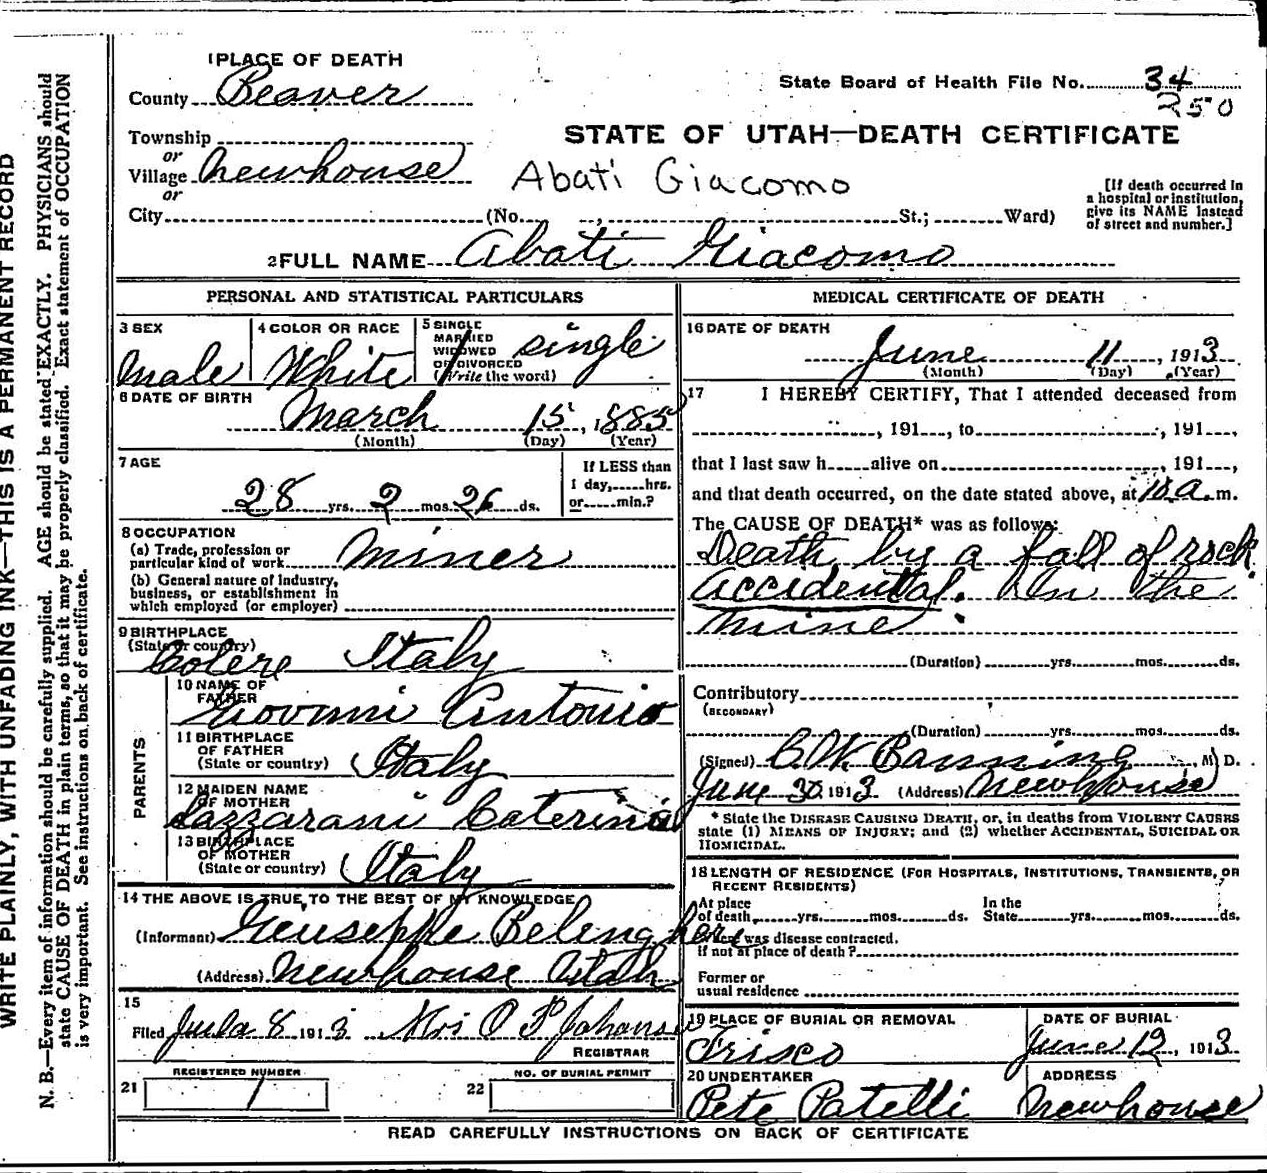 WRITE PLAINLY, WITH UNFADING INK—THIS IS A PERMANENT RECORD
N. B.—Every item of information should be carefully supplied. AGE should be stated EXACTLY. PHYSICIANS should
state CAUSE OF DEATH in plain terms, so that it may be properly classified. Exact statement of OCCUPATION
is very important. See instructions on back of certificate.
1 PLACE OF DEATH
County Beaver
State Board of Health File No. 34
250
Township
or
Village Newhouse
or
STATE OF UTAH—DEATH CERTIFICATE
Abati Giacomo
[If death occurred in
a hospital or institution,
give its NAME instead
of street and number.]
City (No. , St.; Ward)
2 FULL NAME Abati Giacomo
PERSONAL AND STATISTICAL PARTICULARS
3 SEX
Male
4 COLOR OR RACE
White
5 SINGLE
MARRIED
WIDOWED
OR DIVORCED
(Write the word)
single
6 DATE OF BIRTH
March 15, 1885
(Month) (Day) (Year)
7 AGE
28 yrs. 2 mos. 26 ds.
If LESS than
1 day, hrs.
or min.?
8 OCCUPATION
(a) Trade, profession or
particular kind of work Miner
(b) General nature of industry,
business, or establishment in
which employed (or employer)
9 BIRTHPLACE
(State or country)
Colere Italy
PARENTS
10 NAME OF
FATHER
Giovnni Antonio
11 BIRTHPLACE
OF FATHER
(State or country) Italy
12 MAIDEN NAME
OF MOTHER
Lazzarani Caterina
13 BIRTHPLACE
OF MOTHER
(State or country) Italy
14 THE ABOVE IS TRUE TO THE BEST OF MY KNOWLEDGE
(Informant) Geuseppe Belenghere
(Address) Newhouse Utah
15
Filed 8 1913 Mrs O P Johanse
REGISTRAR
21 REGISTERED NUMBER
1
22 NO. OF BURIAL PERMIT
MEDICAL CERTIFICATE OF DEATH
16 DATE OF DEATH
June 11, 1913
(Month) (Day) (Year)
17 I HEREBY CERTIFY, That I attended deceased from
, 191 , to , 191 ,
that I last saw h alive on , 191 ,
and that death occurred, on the date stated above, at a. m.
The CAUSE OF DEATH* was as follows:
Death by a fall of rock
accidental. In the
mine.
(Duration) yrs. mos. ds.
Contributory
(SECONDARY)
(Duration) yrs. mos. ds.
(Signed) C.W. Banning, M. D.
June 30 1913 (Address) Newhouse
* State the DISEASE CAUSING DEATH, or, in deaths from VIOLENT CAUSES
state (1) MEANS OF INJURY; and (2) whether ACCIDENTAL, SUICIDAL OR
HOMICIDAL.
18 LENGTH OF RESIDENCE (FOR HOSPITALS, INSTITUTIONS, TRANSIENTS, OR
RECENT RESIDENTS)
At place
of death yrs. mos. ds.
In the
State yrs. mos. ds.
Where was disease contracted,
if not at place of death?
Former or
usual residence
19 PLACE OF BURIAL OR REMOVAL
Frisco
DATE OF BURIAL
June 12, 1913
20 UNDERTAKER
Pete Patelli
ADDRESS
Newhouse
READ CAREFULLY INSTRUCTIONS ON BACK OF CERTIFICATE